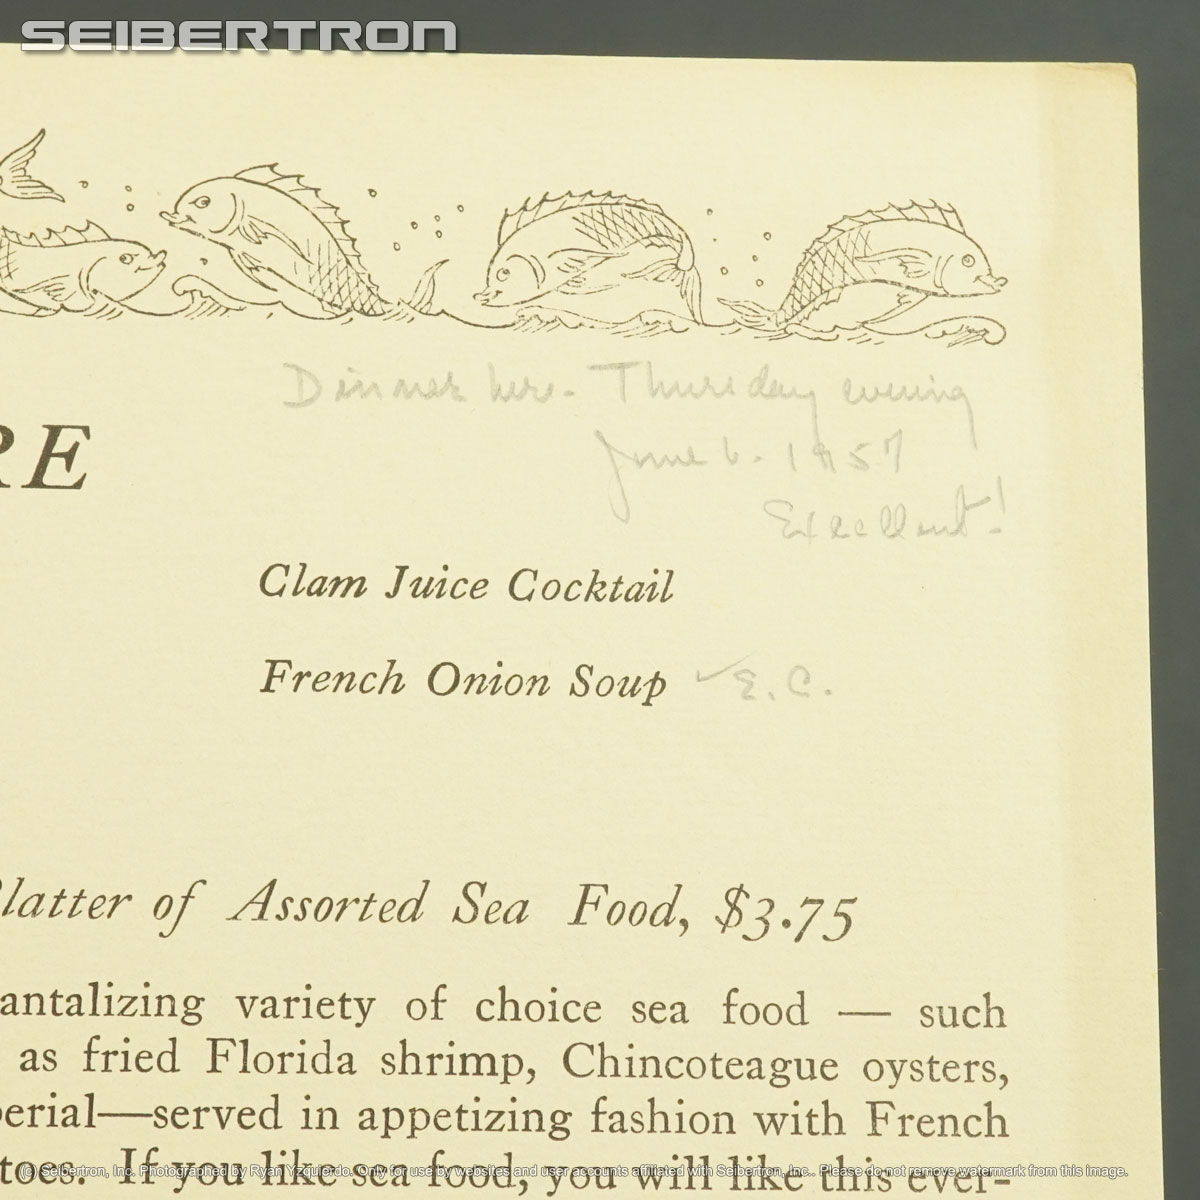 SEIBERTRON
Dinner here - Thursday evening
June 6. 1957
Excellent!
RE
Clam Juice Cocktail
French Onion Soup ✓ E. C.
Platter of Assorted Sea Food, $3.75
antalizing variety of choice sea food — such
as fried Florida shrimp, Chincoteague oysters,
perial—served in appetizing fashion with French
toes. If you like sea food, you will like this ever-
© Seibertron, Inc. Photographed by Ryan Yzquierdo. Only for use by websites and user accounts affiliated with Seibertron, Inc.. Please do not remove watermark from this image.